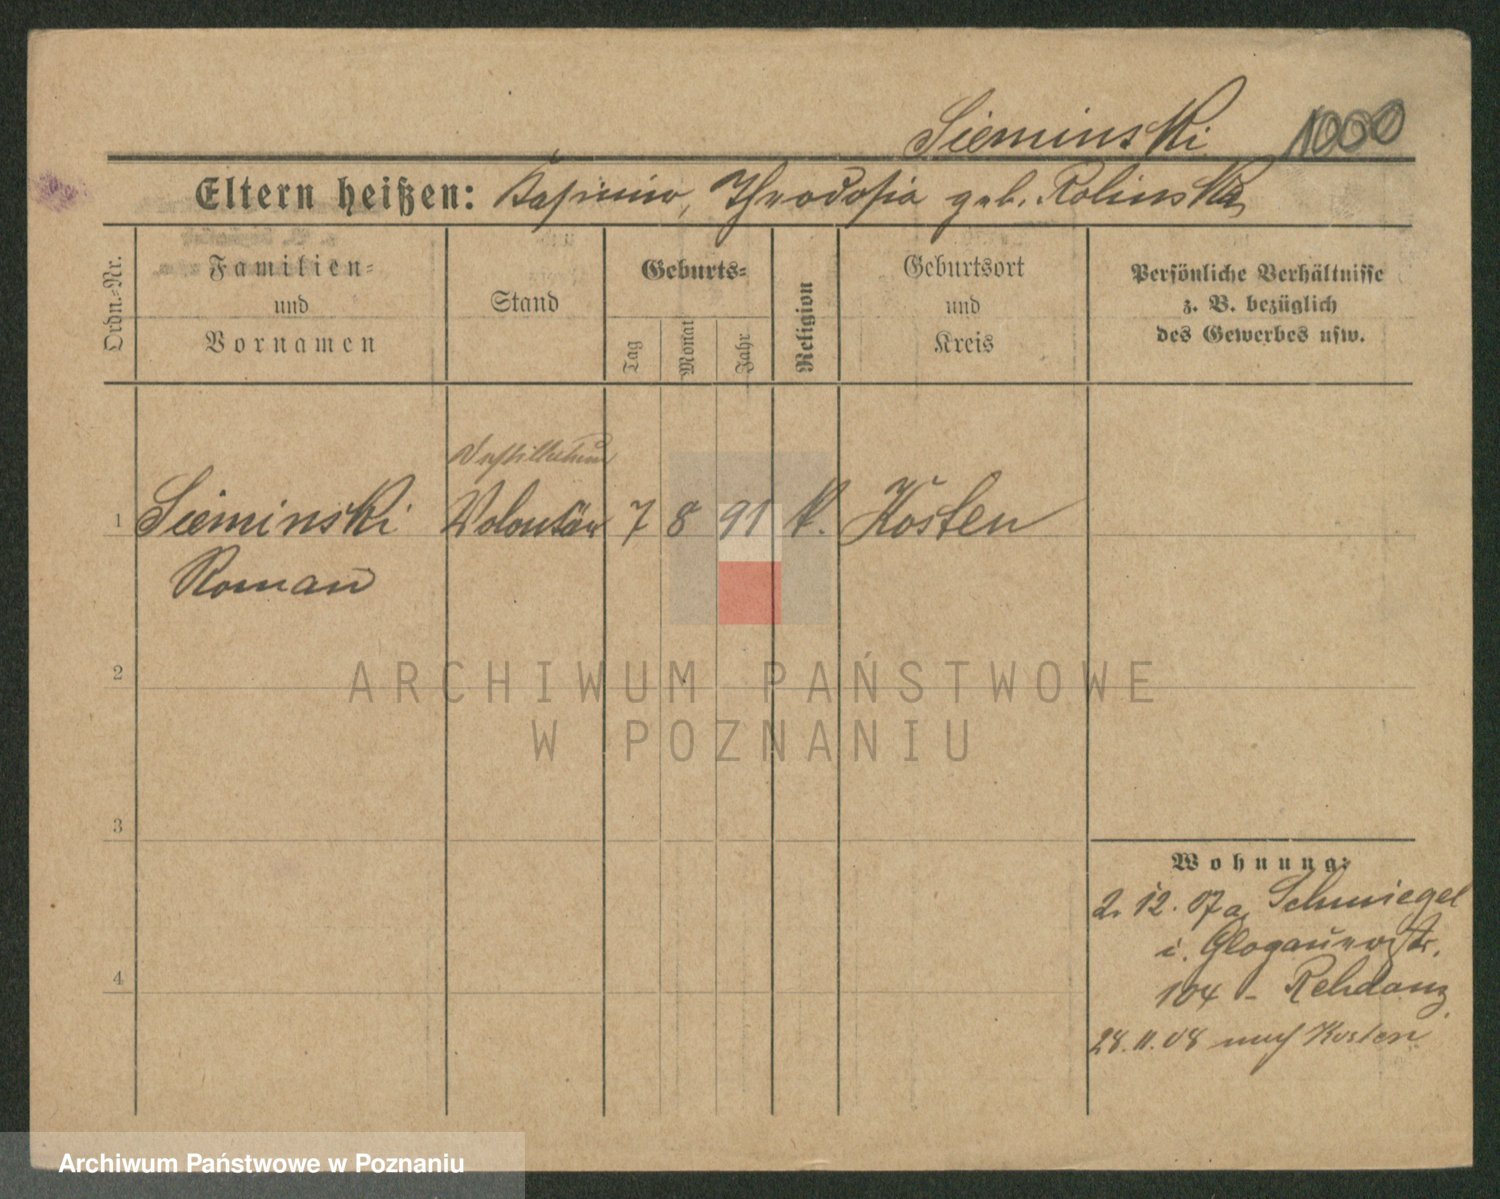 Sieminski 1000
Eltern heißen: Kasimir, Theodosia geb. Rolinska
Ordn.-Nr.
Familien-
und
Vornamen
Stand
Geburts-
Tag
Monat
Jahr
Religion
Geburtsort
und
Kreis
Persönliche Verhältnisse
z. B. bezüglich
des Gewerbes usw.
1 Sieminski Volontär 7 8 91 k. Kosten
Roman
2
3
4
Wohnung:
2. 12. 07 a. Schmiegel
i. Glogauerstr.
104 - Rehdanz
28. 11. 08 nach Kosten
ARCHIWUM PAŃSTWOWE
W POZNANIU
Archiwum Państwowe w Poznaniu